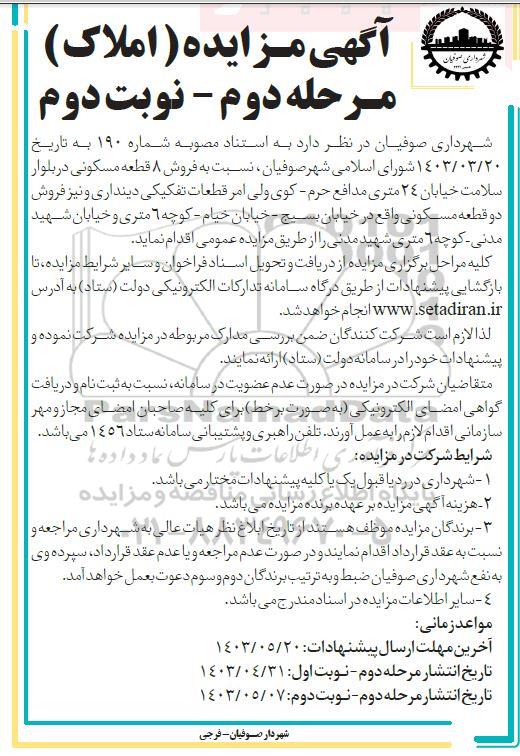 شهرداری صوفیان
آگهی مـزایده (املاک)
مـرحله دوم - نوبت دوم
شهرداری صوفیـان در نظـر دارد به اسـتناد مصوبـه شـماره ۱۹۰ بـه تاریـخ
۱۴۰۳/۰۳/۲۰ شورای اسلامی شهر صوفیان، نسـبت به فروش ۸ قطعه مسکونی در بلوار
سلامت خیابان ۲۴ متری مدافع حرم - کوی ولی امر قطعات تفکیکی دینداری و نیز فروش
دو قطعه مسـکونی واقع در خیابان بسـیج - خیابان خیام - کوچه ۶ متری و خیابان شـهید
مدنی - کوچه ۶ متری شهید مدنی را از طریق مزایده عمومی اقدام نماید.
کلیه مراحل برگزاری مزایده از دریافت و تحویل اسـناد فراخوان و سـایر شرایط مزایده، تا
بازگشایی پیشنهادات از طریق درگاه سـامانه تدارکات الکترونیکی دولت (ستاد) به آدرس
www.setadiran.ir انجام خواهد شد.
لذا لازم است شـرکت کنندگان ضمن بررسـی مدارک مربوطه در مزایده شـرکت نموده و
پیشنهادات خود را در سامانه دولت (ستاد) ارائه نمایند.
متقاضیان شرکت در مزایده در صورت عدم عضویت در سامانه، نسبت به ثبت نام و دریافت
گواهی امضـای الکترونیکی (به صـورت برخط) برای کلیـه صاحبان امضـای مجاز و مهر
سازمانی اقدام لازم را به عمل آورند. تلفن راهبری و پشتیبانی سامانه ستاد ۱۴۵۶ می باشد.
شرایط شرکت در مزایده:
۱- شهرداری در رد یا قبول یک یا کلیه پیشنهادات مختار می باشد.
۲- هزینه آگهی مزایده بر عهده برنده مزایده می باشد.
۳- برندگان مزایده موظف هسـتند از تاریخ ابلاغ نظر هیات عالی به شـهرداری مراجعه و
نسبت به عقد قرارداد اقدام نمایند و در صورت عدم مراجعه و یا عدم عقد قرارداد، سپرده وی
به نفع شهرداری صوفیان ضبط و به ترتیب برندگان دوم و سوم دعوت بعمل خواهد آمد.
۴- سایر اطلاعات مزایده در اسناد مندرج می باشد.
مواعد زمانی:
آخرین مهلت ارسال پیشنهادات: ۱۴۰۳/۰۵/۲۰
تاریخ انتشار مرحله دوم - نوبت اول: ۱۴۰۳/۰۴/۳۱
تاریخ انتشار مرحله دوم - نوبت دوم: ۱۴۰۳/۰۵/۰۷
شهردار صوفیان - فرجی